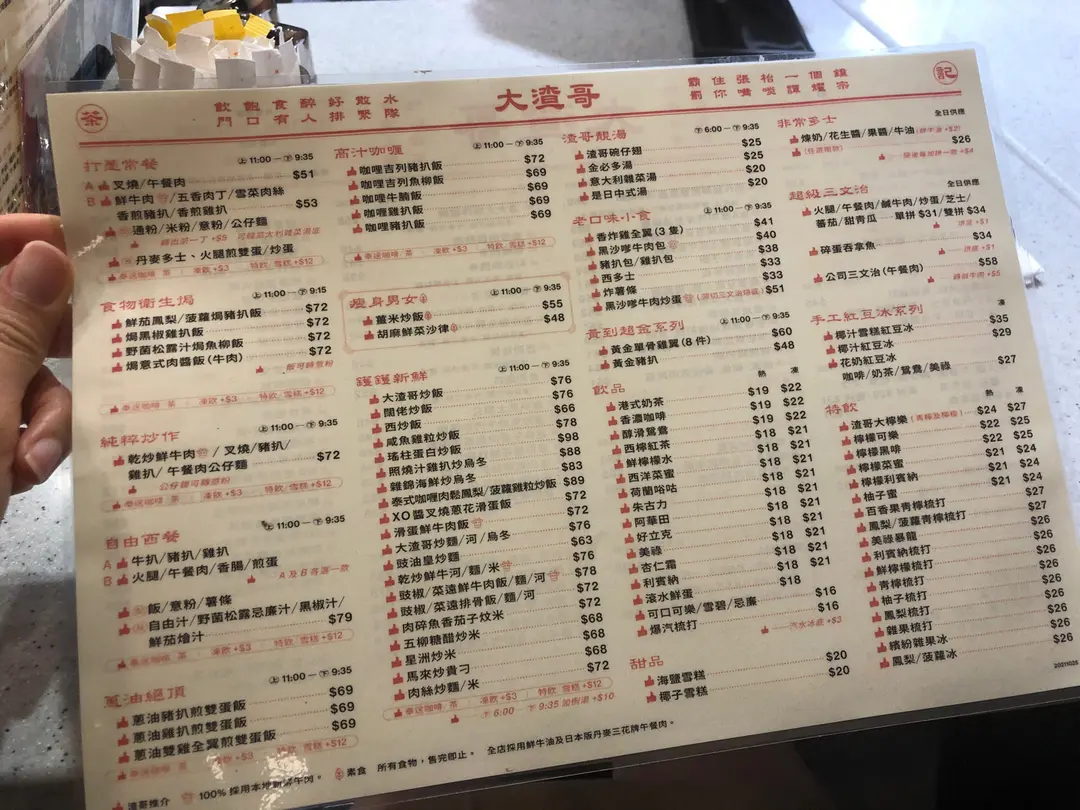 茶
飲飽食醉好散水
門口有人排緊隊
大渣哥
霸住張枱一個鐘
罰你嘴啖譚耀宗
記
打是常餐 上11:00 — 下9:35
A 叉燒/午餐肉 $51
B 鮮牛肉/五香肉丁/雪菜肉絲
香煎豬扒/香煎雞扒 $53
通粉/米粉/意粉/公仔麵
轉出前一丁 +$5
丹麥多士、火腿煎雙蛋/炒蛋
奉送咖啡 茶 凍飲+$3 特飲 雪糕+$12
食物衛生焗 上11:00 — 下9:15
鮮茄鳳梨/菠蘿焗豬扒飯 $72
焗黑椒雞扒飯 $72
野菌松露汁焗魚柳飯 $72
焗意式肉醬飯(牛肉) $72
飯可轉意粉
奉送咖啡 茶 凍飲+$3 特飲 雪糕+$12
純粹炒作 上11:00 — 下9:35
乾炒鮮牛肉/叉燒/豬扒/
雞扒/午餐肉公仔麵 $72
公仔麵可轉意粉
奉送咖啡 茶 凍飲+$3 特飲 雪糕+$12
自由西餐 上11:00 — 下9:35
A 牛扒/豬扒/雞扒
B 火腿/午餐肉/香腸/煎蛋
A及B各選一款
飯/意粉/薯條
自由汁/野菌松露忌廉汁/黑椒汁/
鮮茄燴汁 $79
奉送咖啡 茶 凍飲+$3 特飲 雪糕+$12
蔥油絕頂 上11:00 — 下9:35
蔥油豬扒煎雙蛋飯 $69
蔥油雞扒煎雙蛋飯 $69
蔥油雙雞全翼煎雙蛋飯 $69
奉送咖啡 茶 凍飲+$3 特飲 雪糕+$12
高汁咖喱 上11:00 — 下9:35
咖喱吉列豬扒飯 $72
咖喱吉列魚柳飯 $69
咖喱牛腩飯 $69
咖喱雞扒飯 $69
咖喱豬扒飯
奉送咖啡 茶 凍飲+$3 特飲 雪糕+$12
瘦身男女 上11:00 — 下9:35
薑米炒飯 $55
胡麻鮮菜沙律 $48
鑊鑊新鮮 上11:00 — 下9:35
大渣哥炒飯 $76
闊佬炒飯 $76
西炒飯 $66
咸魚雞粒炒飯 $78
瑤柱蛋白炒飯 $98
照燒汁雞扒炒烏冬 $88
雜錦海鮮炒烏冬 $83
泰式咖喱肉鬆鳳梨/菠蘿雞粒炒飯 $89
XO醬叉燒蔥花滑蛋飯 $72
滑蛋鮮牛肉飯 $72
大渣哥炒麵/河/烏冬 $76
豉油皇炒麵 $63
乾炒鮮牛河/麵/米 $76
豉椒/菜遠鮮牛肉飯/麵/河 $78
豉椒/菜遠排骨飯/麵/河 $72
肉碎魚香茄子炆米 $72
五柳糖醋炒米 $68
星洲炒米 $68
馬來炒貴刁 $68
肉絲炒麵/米 $72
奉送咖啡 茶 凍飲+$3 特飲 雪糕+$12
下6:00 — 下9:35 加例湯+$10
渣哥靚湯 下6:00 — 下9:35
渣哥碗仔翅 $25
金必多湯 $25
意大利雜菜湯 $20
是日中式湯 $20
老口味小食 上11:00 — 下9:35
香炸雞全翼(3隻) $41
黑沙嗲牛肉包 $40
豬扒包/雞扒包 $38
西多士 $33
炸薯條 $33
黑沙嗲牛肉炒蛋 $51
黃到超金系列 上11:00 — 下9:35
黃金單骨雞翼(8件) $60
黃金豬扒 $48
飲品 熱 凍
港式奶茶 $19 $22
香濃咖啡 $19 $22
醇滑鴛鴦 $19 $22
西檸紅茶 $18 $21
鮮檸檬水 $18 $21
西洋菜蜜 $18 $21
荷蘭唂咕 $18 $21
朱古力 $18 $21
阿華田 $18 $21
好立克 $18 $21
美祿 $18 $21
杏仁霜 $18 $21
利賓納 $18 $21
滾水鮮蛋 $18
可口可樂/雪碧/忌廉 $16
爆汽梳打 $16
汽水冰底+$3
甜品
海鹽雪糕 $20
椰子雪糕 $20
非常多士 全日供應
煉奶/花生醬/果醬/牛油 $26
隨後每加時一款+$4
超級三文治 全日供應
火腿/午餐肉/鹹牛肉/炒蛋/芝士/
番茄/甜青瓜 單拼$31/雙拼$34
烘底+$1
碎蛋吞拿魚 $34
烘底+$1
公司三文治(午餐肉) $58
轉鮮牛肉+$5
手工紅豆冰系列 凍
椰汁雪糕紅豆冰 $35
椰汁紅豆冰 $29
花奶紅豆冰
咖啡/奶茶/鴛鴦/美祿 $27
特飲 熱 凍
渣哥大檸樂(青檸及檸檬) $24 $27
檸檬可樂 $22 $25
檸檬黑啡 $22 $25
檸檬菜蜜 $21 $24
檸檬利賓納 $21 $24
柚子蜜 $21 $24
百香果青檸梳打 $27
鳳梨/菠蘿青檸梳打 $27
美祿暴龍 $26
利賓納梳打 $26
鮮檸檬梳打 $26
青檸梳打 $26
柚子梳打 $26
鳳梨梳打 $26
雜果梳打 $26
繽紛雜果冰 $26
鳳梨/菠蘿冰 $26
20211025
渣哥推介 100%採用本地新鮮牛肉。 素食 所有食物，售完即止。 全店採用鮮牛油及日本版丹麥三花牌午餐肉。